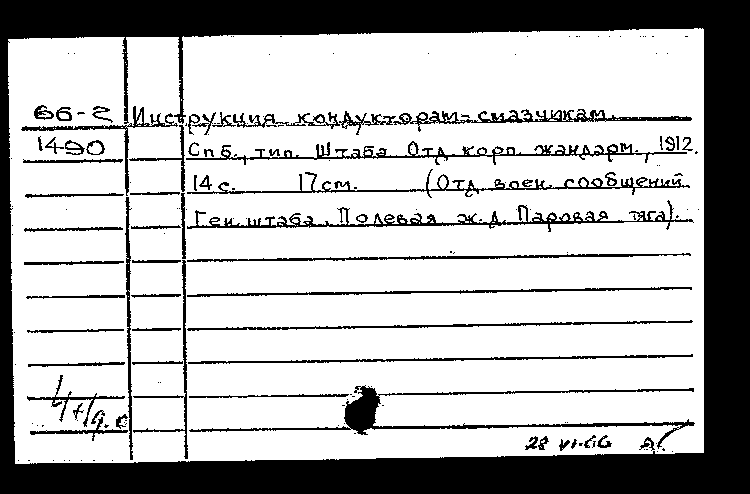 66-2 Инструкция кондукторам-смазчикам.
14-90 Спб., тип. Штаба Отд. корп. жандарм., 1912.
14 с. 17 см. (Отд. воен. сообщений
Ген. штаба. Полевая ж.д. Паровая тяга).
28 VI-66